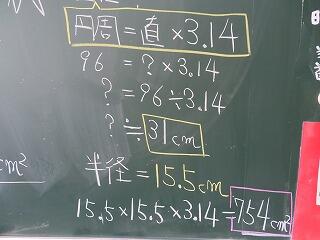 円周=直×3.14
96 = ?×3.14
?=96÷3.14
?≒31cm
半径=15.5cm
15.5×15.5×3.14=754cm²
cm²